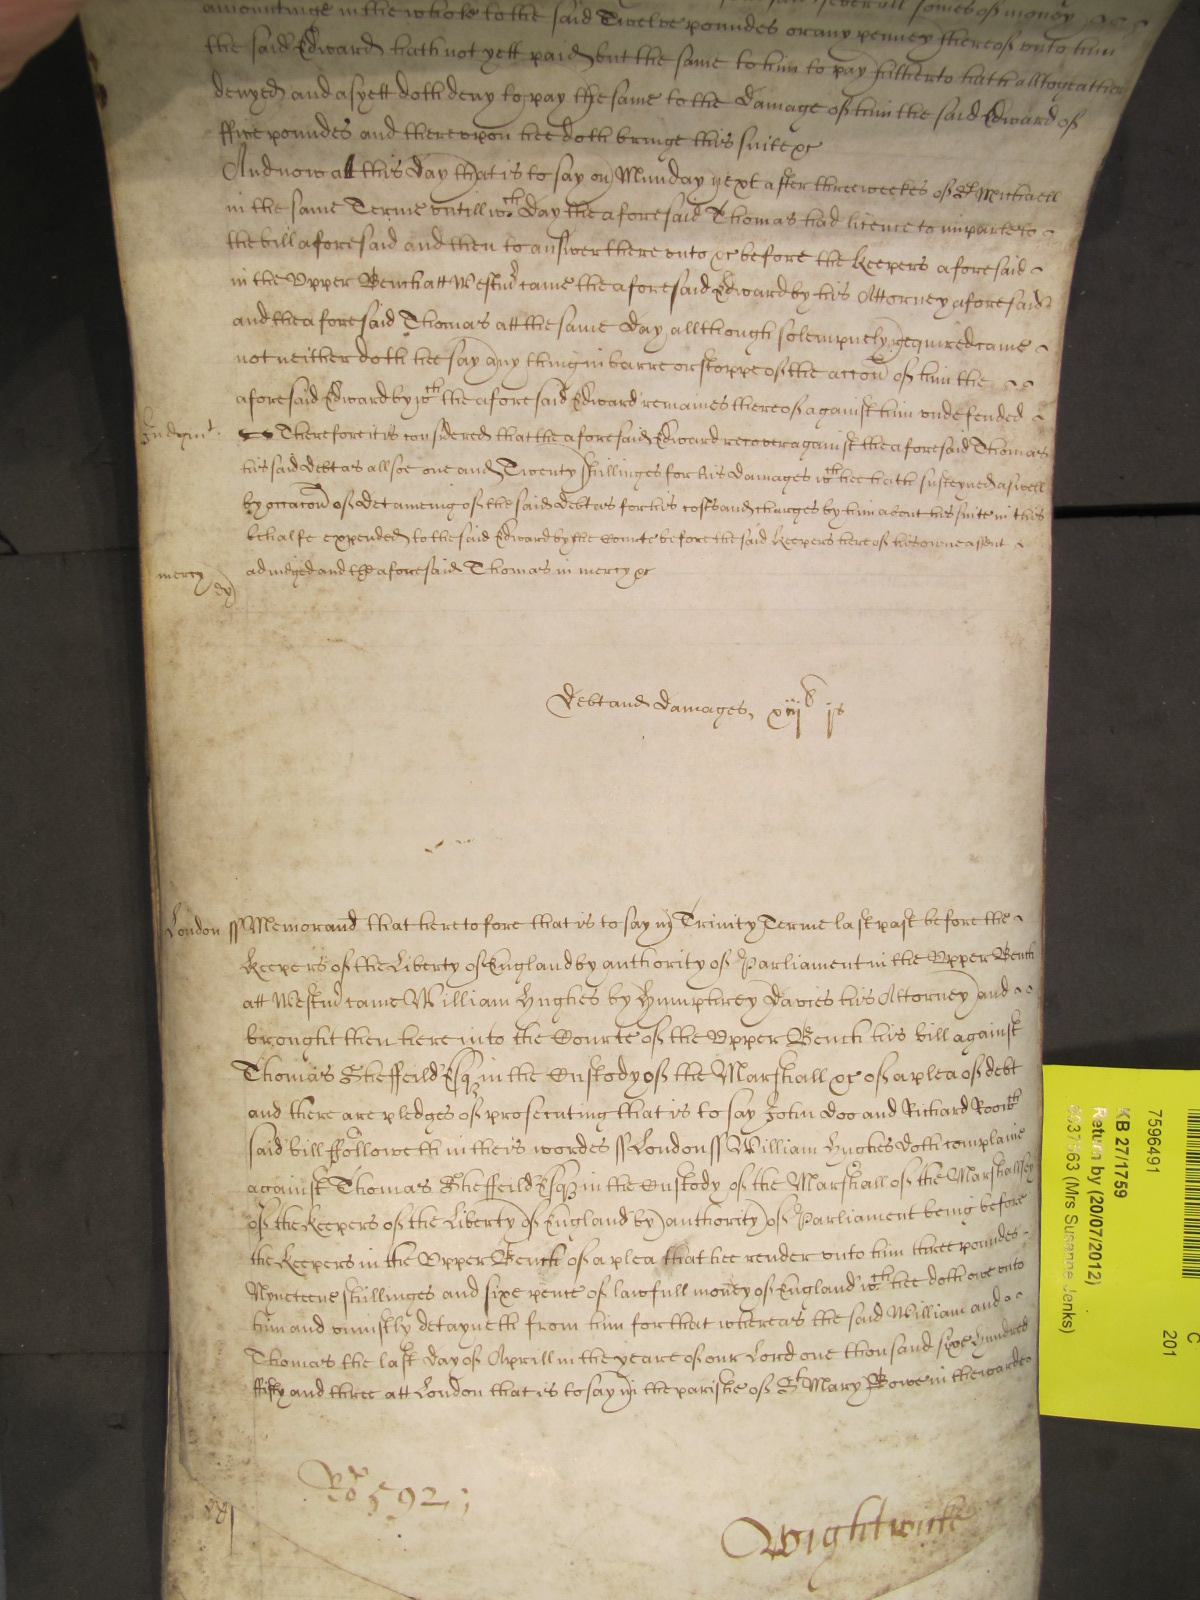 amountinge in the whole to the said Twelve poundes or any penney thereof unto him
the said Edward hath not yett paid but the same to him to pay hitherto hath alltogeather
denyed and as yett doth deny to pay the same to the damage of him the said Edward of
ffive poundes and thereupon hee doth bringe this suite &c
And now att this day that is to say on Munday next after three weekes of St Michaell
in the same Terme untill wch day the aforesaid Thomas had licence to imparle to
the bill aforesaid and then to answer there unto &c before the Keepers aforesaid
in the Upper Bench att Westmr came the aforesaid Edward by his Attorney aforesaid
and the aforesaid Thomas att the same day allthough solempnely required came
not neither doth hee say any thing in barre or stoppe of the accon of him the
aforesaid Edward by wch the aforesaid Edward remaines thereof against him undefended
Judgmt. Therefore it is considered that the aforesaid Edward recover against the aforesaid Thomas
his said debt as allsoe one and Twenty shillinges for his damages wch hee hath susteyned aswell
by occacon of detaineing of the said debt as for his costs and charges by him about his suite in this
behalfe expended to the said Edward by the Courte before the said Keepers here of his owne assent
mercy adiudged and the aforesaid Thomas in mercy &c
Debt and damages, xiijli js
London ss Memorand that heretofore that is to say in Trinity Terme last past before the
Keepers of the Liberty of England by authority of Parliament in the Upper Bench
att Westmr came William Hughes by Humphrey Davies his Attorney and
brought then here into the Courte of the Upper Bench his bill against
Thomas Sheffeild Esqr in the Custody of the Marshall &c of a plea of debt
and there are pledges of prosecuting that is to say John Doo and Richard Roo wch
said bill ffolloweth in theis wordes ss London ss William Hughes doth complaine
against Thomas Sheffeild Esqr in the Custody of the Marshall of the Marshallsey
of the Keepers of the Liberty of England by authority of Parliament being before
the Keepers in the Upper Bench of a plea that hee render unto him three poundes
Nyneteene shillinges and sixe pence of lawfull money of England wch hee doth owe unto
him and uniustly detayneth from him for that whereas the said William and
Thomas the last day of Aprill in the yeare of our Lord one thousand sixe hundred
ffifty and three att London that is to say in the parishe of St Mary Bowe in the warde
Ro 592;
Wightwicke
7596491
C
201
KB 27/1759
Return by (20/07/2012)
(Mrs Susanne Jenks)